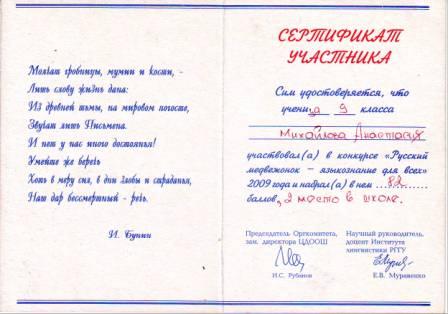 Молчат гробницы, мумии и кости, -
Лишь слову жизнь дана:
Из древней тьмы, на мировом погосте,
Звучат лишь Письмена.
И нет у нас иного достоянья!
Умейте же беречь
Хоть в меру сил, в дни злобы и страданья,
Наш дар бессмертный - речь.
И. Бунин
СЕРТИФИКАТ
УЧАСТНИКА
Сим удостоверяется, что
учени ца 9 класса
Михайлова Анастасия
участвовал(а) в конкурсе «Русский
медвежонок – языкознание для всех»
2009 года и набрал(а) в нем ...82
баллов, 2 место в школе.
Председатель Оргкомитета,
зам. директора ЦДООШ
И.С. Рубанов
Научный руководитель,
доцент Института
лингвистики РГГУ
Е.В. Муравенко